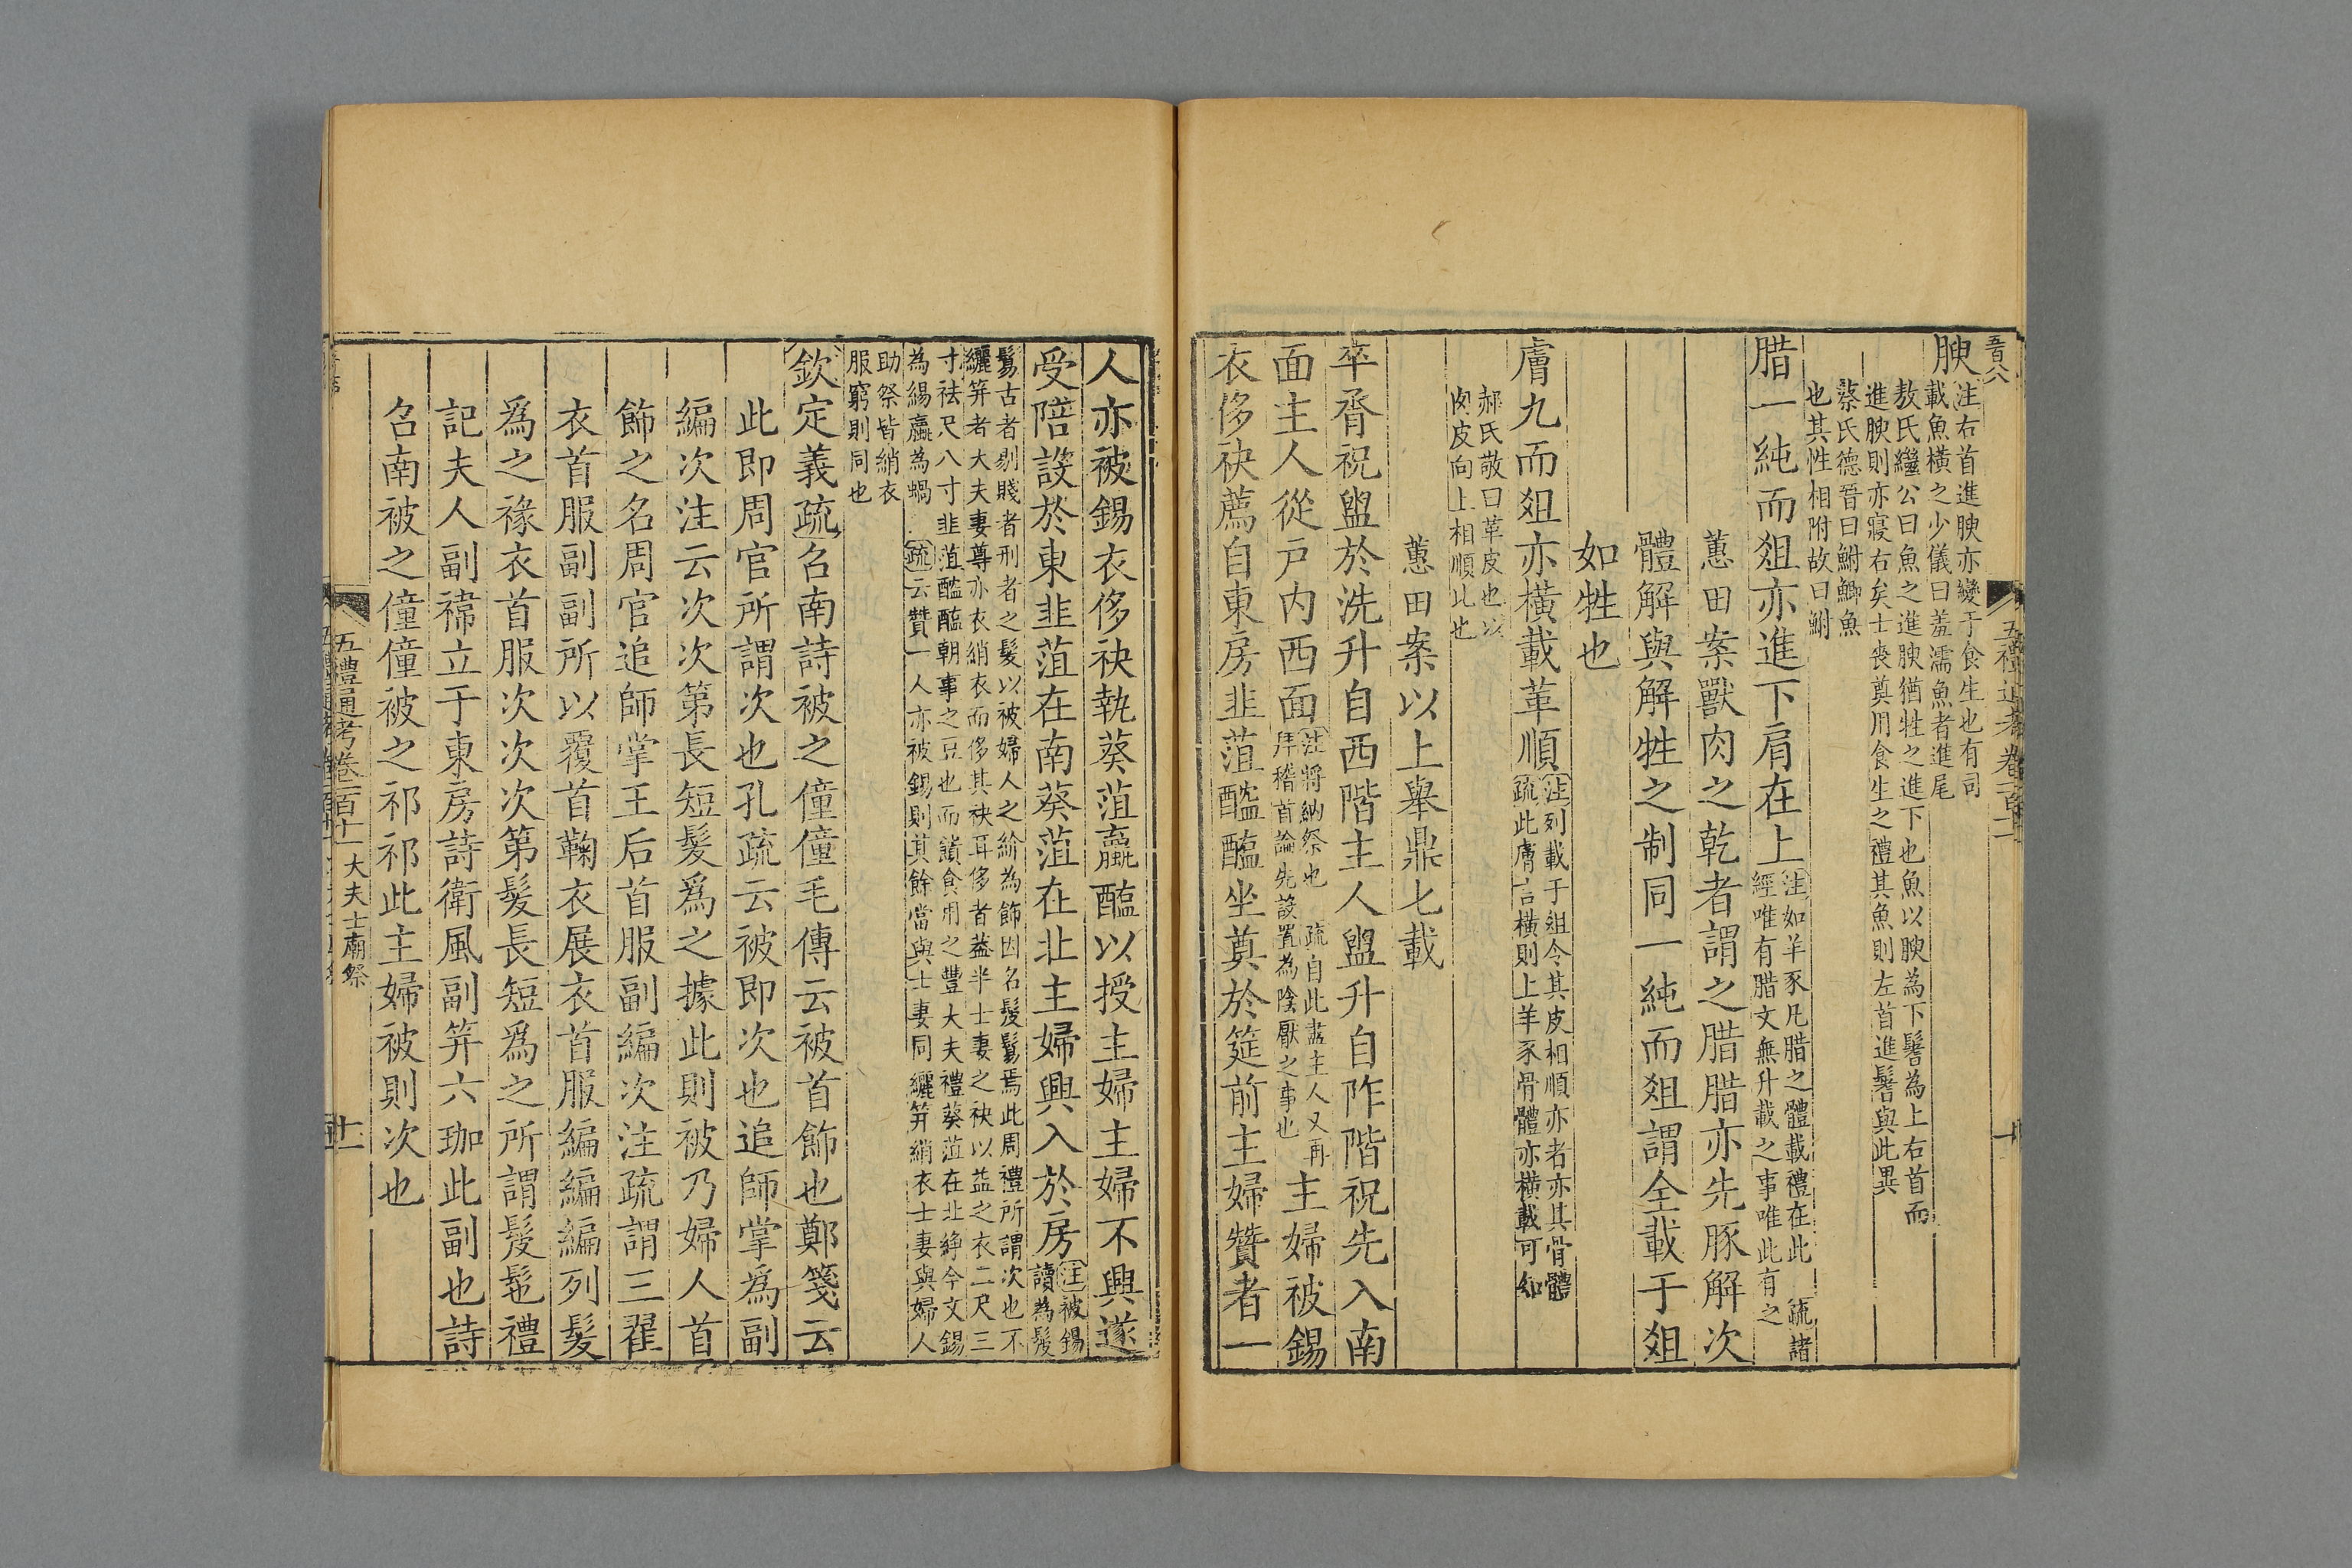 五百八
腴注右首進腴亦變于食生也有司
載魚橫之少儀曰羞濡魚者進尾
敖氏繼公曰魚之進腴猶牲之進下也魚以腴為下鬐為上右首而
進腴則亦寢右矣士喪奠用食生之禮其魚則左首進鬐與此異
蔡氏德晉曰鮒鯽魚
也其性相附故曰鮒
腊一純而俎亦進下肩在上注如羊豕凡腊之體載禮在此 疏諸
經唯有腊文無升載之事唯此有之
蕙田案獸肉之乾者謂之腊腊亦先豚解次
體解與解牲之制同一純而俎謂全載于俎
如牲也
膚九而俎亦橫載革順注列載于俎令其皮相順亦者亦其骨體
疏此膚言橫則上羊豕骨體亦橫載可知
郝氏敬曰革皮也以
肉皮向上相順比也
蕙田案以上舉鼎匕載
卒脀祝盥於洗升自西階主人盥升自阼階祝先入南
面主人從戶内西面注將納祭也 疏自此盡主人又再
拜稽首論先設置為陰厭之事也
主婦被錫
衣侈袂薦自東房韭菹醓醢坐奠於筵前主婦贊者一
五禮通考卷一百十一
人亦被錫衣侈袂執葵菹蠃醢以授主婦主婦不興遂
受陪設於東韭菹在南葵菹在北主婦興入於房注被錫
讀為髲
鬄古者剔賤者刑者之髮以被婦人之紒為飾因名髲鬄焉此周禮所謂次也不
纚笄者大夫妻尊亦衣綃衣而侈其袂耳侈者葢半士妻之袂以益之衣二尺三
寸袪尺八寸韭菹醓醢朝事之豆也而饋食用之豐大夫禮葵菹在北綪今文錫
為緆蠃為蝸 疏云贊一人亦被錫則其餘當與士妻同纚笄綃衣士妻與婦人
助祭皆綃衣
服窮則同也
欽定義疏召南詩被之僮僮毛傳云被首飾也鄭箋云
此即周官所謂次也孔疏云被即次也追師掌爲副
編次注云次次第長短髮爲之據此則被乃婦人首
飾之名周官追師掌王后首服副編次注疏謂三翟
衣首服副副所以覆首鞠衣展衣首服編編編列髮
爲之褖衣首服次次次第髮長短爲之所謂髲髢禮
記夫人副褘立于東房詩衛風副笄六珈此副也詩
召南被之僮僮被之祁祁此主婦被則次也
五禮通考卷一百十一 大夫士廟祭
十一